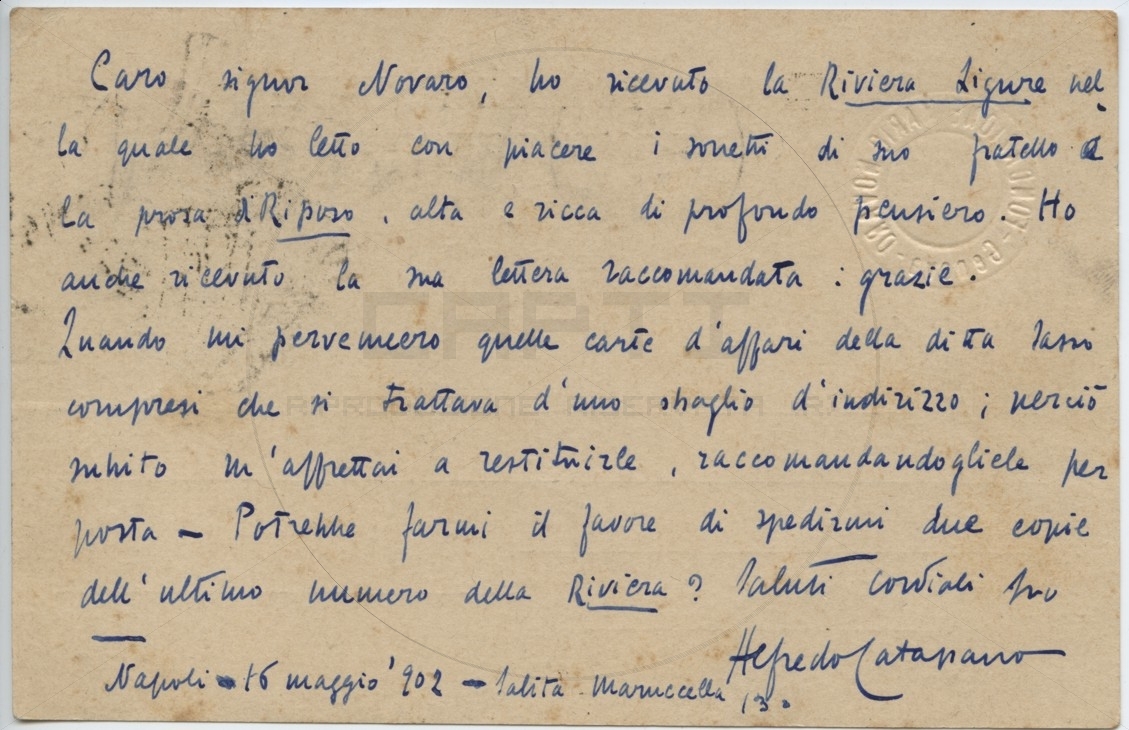 Caro signor Novaro, ho ricevuto la Riviera Ligure nel
la quale ho letto con piacere i sonetti di suo fratello e
la prosa di Riposo, alta e ricca di profondo pensiero. Ho
anche ricevuto la sua lettera raccomandata: grazie.
Quando mi pervennero quelle carte d'affari della ditta Sasso
compresi che si trattava d'uno sbaglio d'indirizzo; perciò
subito m'affrettai a restituirle, raccomandandogliele per
posta — Potrebbe farmi il favore di spedirmi due copie
dell'ultimo numero della Riviera? Saluti cordiali suo
Alfredo Catapano
Napoli - 16 maggio '902 - Salita 13.